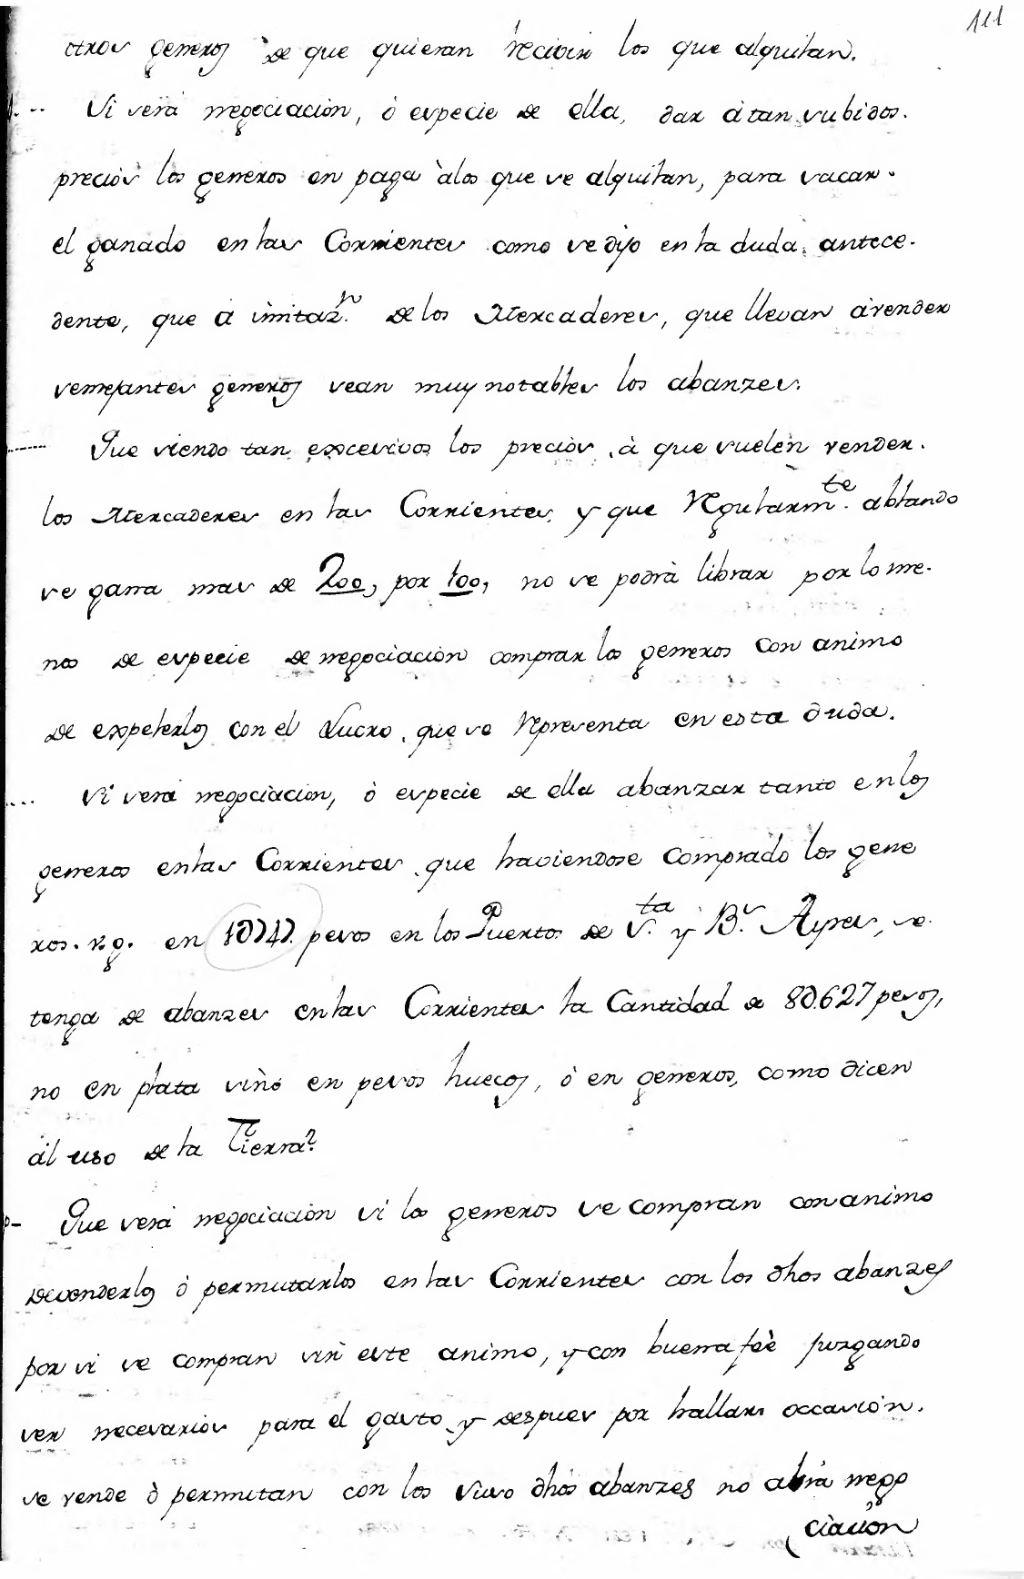 111
otros generos de que quieran recivir los que alquilan.
Si será negociación, ó especie de ella, dar á tan subidos.
precios los generos en paga álos que se alquilan, para sacar
el ganado en las Corrientes como se dijo en la duda antece-
dente, que á imitazn. de los Mercaderes, que llevan ávender
semejantes generos sean muy notables los abanzes.
Que siendo tan excesivos los precios á que suelen vender.
los Mercaderes en las Corrientes, y que regularmte. ablando
se gana mas de 200, por 100, no se podrá librar por lo me-
nos de especie de negociación comprar los generos con animo
de expelerlos con el Lucro, que se representa en esta duda.
Si será negociación, ó especie de ella abanzar tanto en los
generos enlas Corrientes que haviendose comprado los gene
ros. v.g. en pesos en los Puertos de Sta. y Bs. Ayres, se
tenga de abanzes enlas Corrientes la Cantidad de 80.627 pesos,
no en plata sinó en pesos huecos, ó en generos, como dicen
ál uso de la Tierra?
Que será negociación si los generos se compran con animo
devenderlos ó permutarlos en las Corrientes con los dhos abanzes
por si se compran sin este animo, y con buena feè juzgando
ser necesarios para el gasto y despues por hallar occasión.
se vende ò permutan con los dhos abanzes no abrá nego
ciación